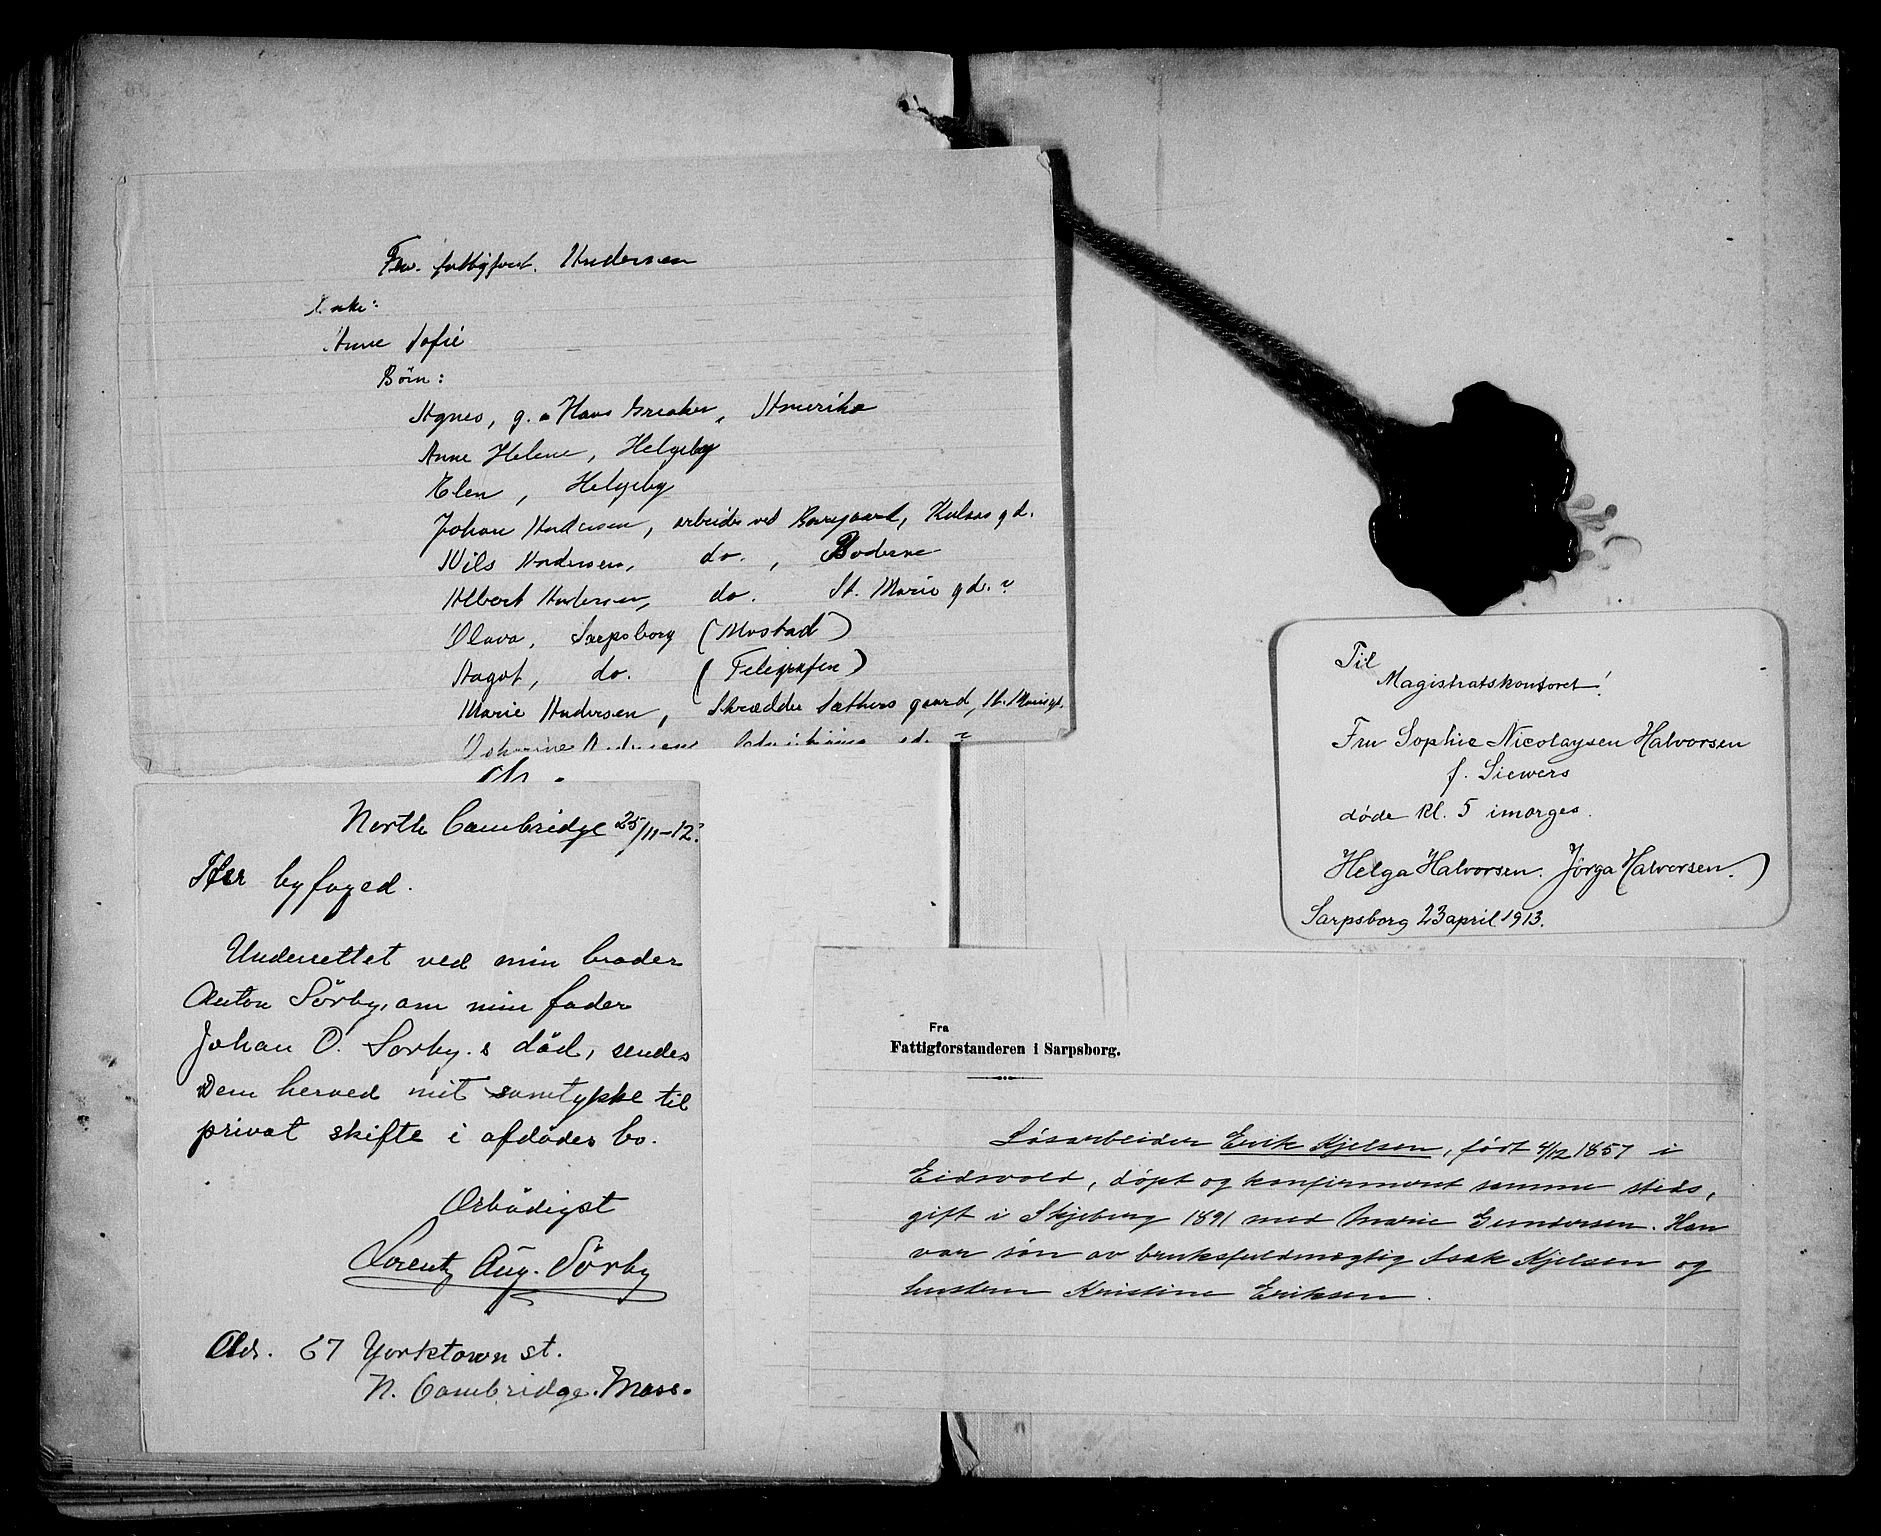 Frw. fattigforst. Andersen
Enke:
Anne Sofie
Børn:
Agnes, g. m Hans Greaker, Amerika
Anne Helene, Helgeby
Elen, Helgeby
Johan Andersen, arbeider ved Borregaard, Kulaas gd.
Nils Andersen, do., Boderne
Albert Andersen, do. St. Marie gd.?
Olava, Sarpsborg (Mustad)
Aagot, do. (Telegrafen)
Marie Andersen, Skrædder Sæthers gaard, St. Mariegt.
North Cambridge 25/11-12.
Herr byfoged.
Underrettet ved min broder
Anton Sörby, om min fader
Johan O. Sørby.s död, sendes
Dem herved mit samtykke til
privat skifte i afdödes bo.
Ærbödigst
Lorentz Aug. Sörby
Adr. 67 Yorktown st.
N. Cambridge. Mass.
Til
Magistratskontoret!
Fru Sophie Nicolaysen Halvorsen
f. Siewers
døde kl. 5 imorges.
Helga Halvorsen. Jørga Halvorsen.
Sarpsborg 23 april 1913.
Fra
Fattigforstanderen i Sarpsborg.
Løsarbeider Erik Kjelsen, født 4/12 1857 i
Eidsvold, døpt og konfirmeret samme steds,
gift i Skjeberg 1891 med Marie Gundersen. Han
var søn av bruksfuldmægtig Isak Kjelsen og
hustru Kristine Eriksen.